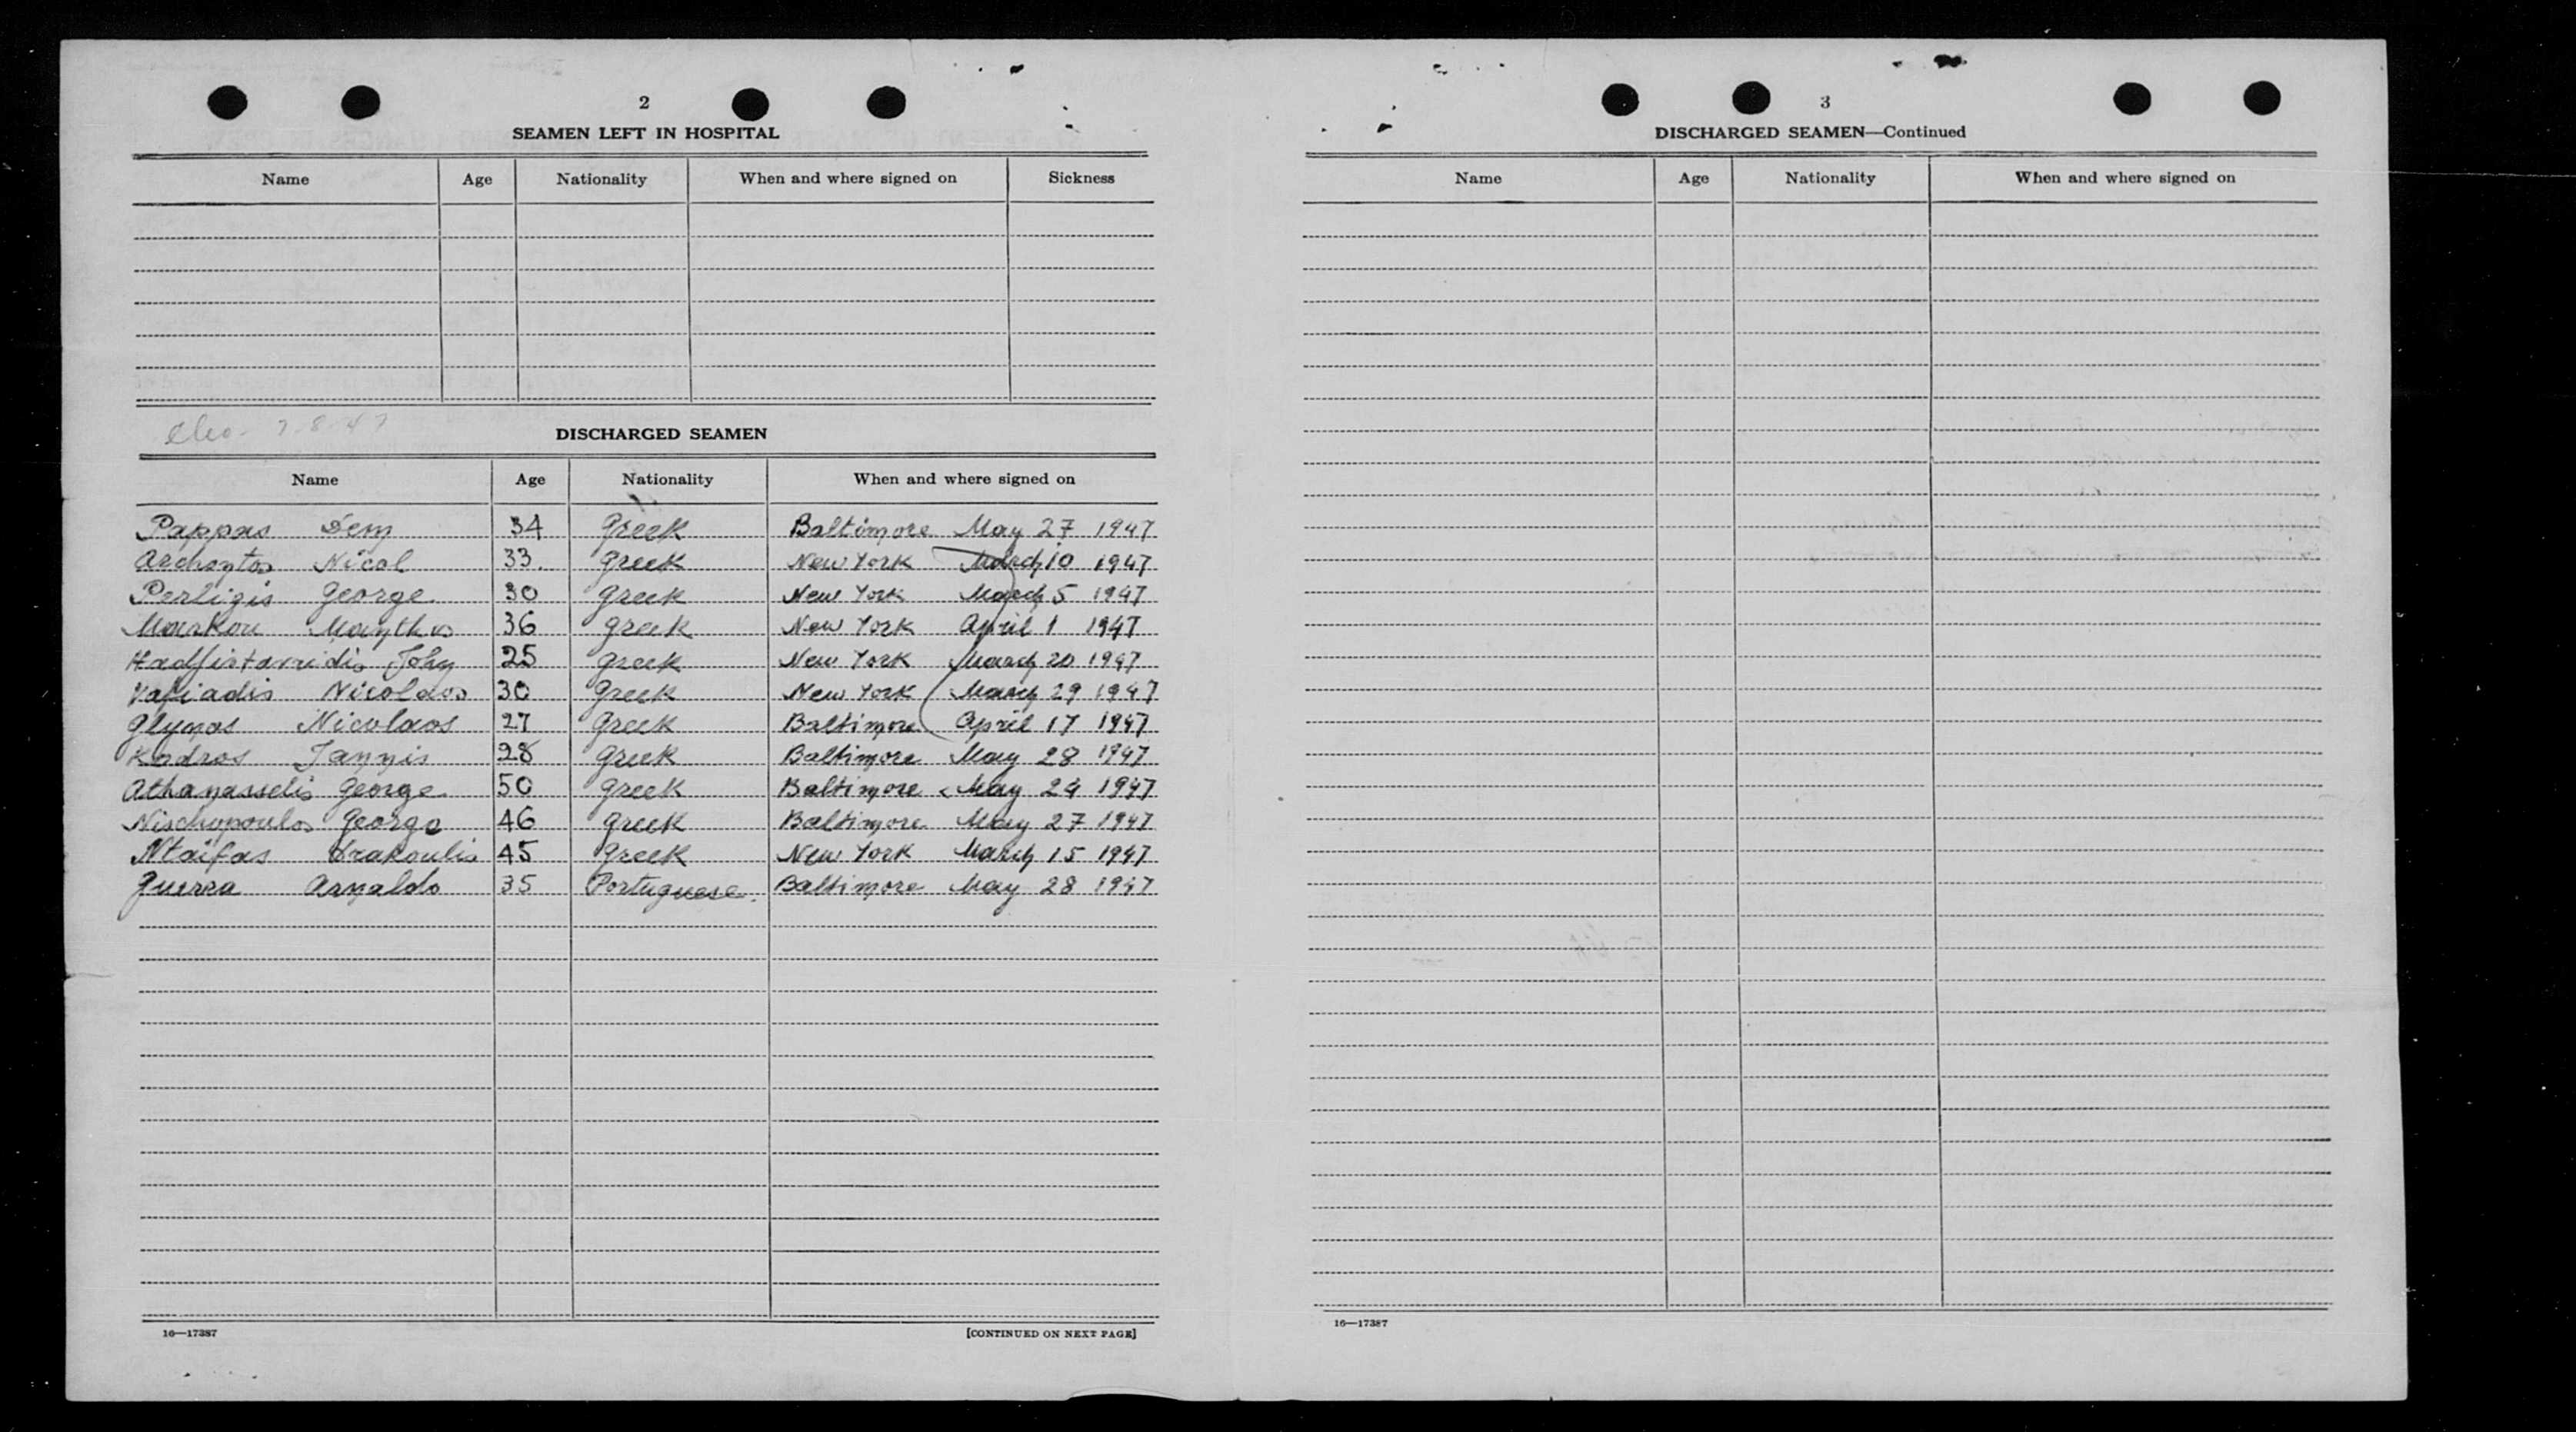 2
SEAMEN LEFT IN HOSPITAL
Name Age Nationality When and where signed on Sickness
7-8-47
DISCHARGED SEAMEN
Name Age Nationality When and where signed on
Pappas Dem 34 Greek Baltimore May 27 1947
Archontos Nicol 33 Greek New York March 10 1947
Perligis George 30 Greek New York March 5 1947
Markou Manthos 36 Greek New York April 1 1947
Hadjistavridis John 25 Greek New York March 20 1947
Vafiadis Nicolaos 30 Greek New York March 29 1947
Glynos Nicolaos 27 Greek Baltimore April 17 1947
Kodros Jannis 28 Greek Baltimore May 28 1947
Athanasselis George 50 Greek Baltimore May 24 1947
Nischopoulos George 46 Greek Baltimore May 27 1947
Ntaifas Drakoulis 45 Greek New York March 15 1947
Guerra Arnaldo 35 Portuguese. Baltimore May 28 1947
16—17387 [CONTINUED ON NEXT PAGE]
3
DISCHARGED SEAMEN—Continued
Name Age Nationality When and where signed on
16—17387